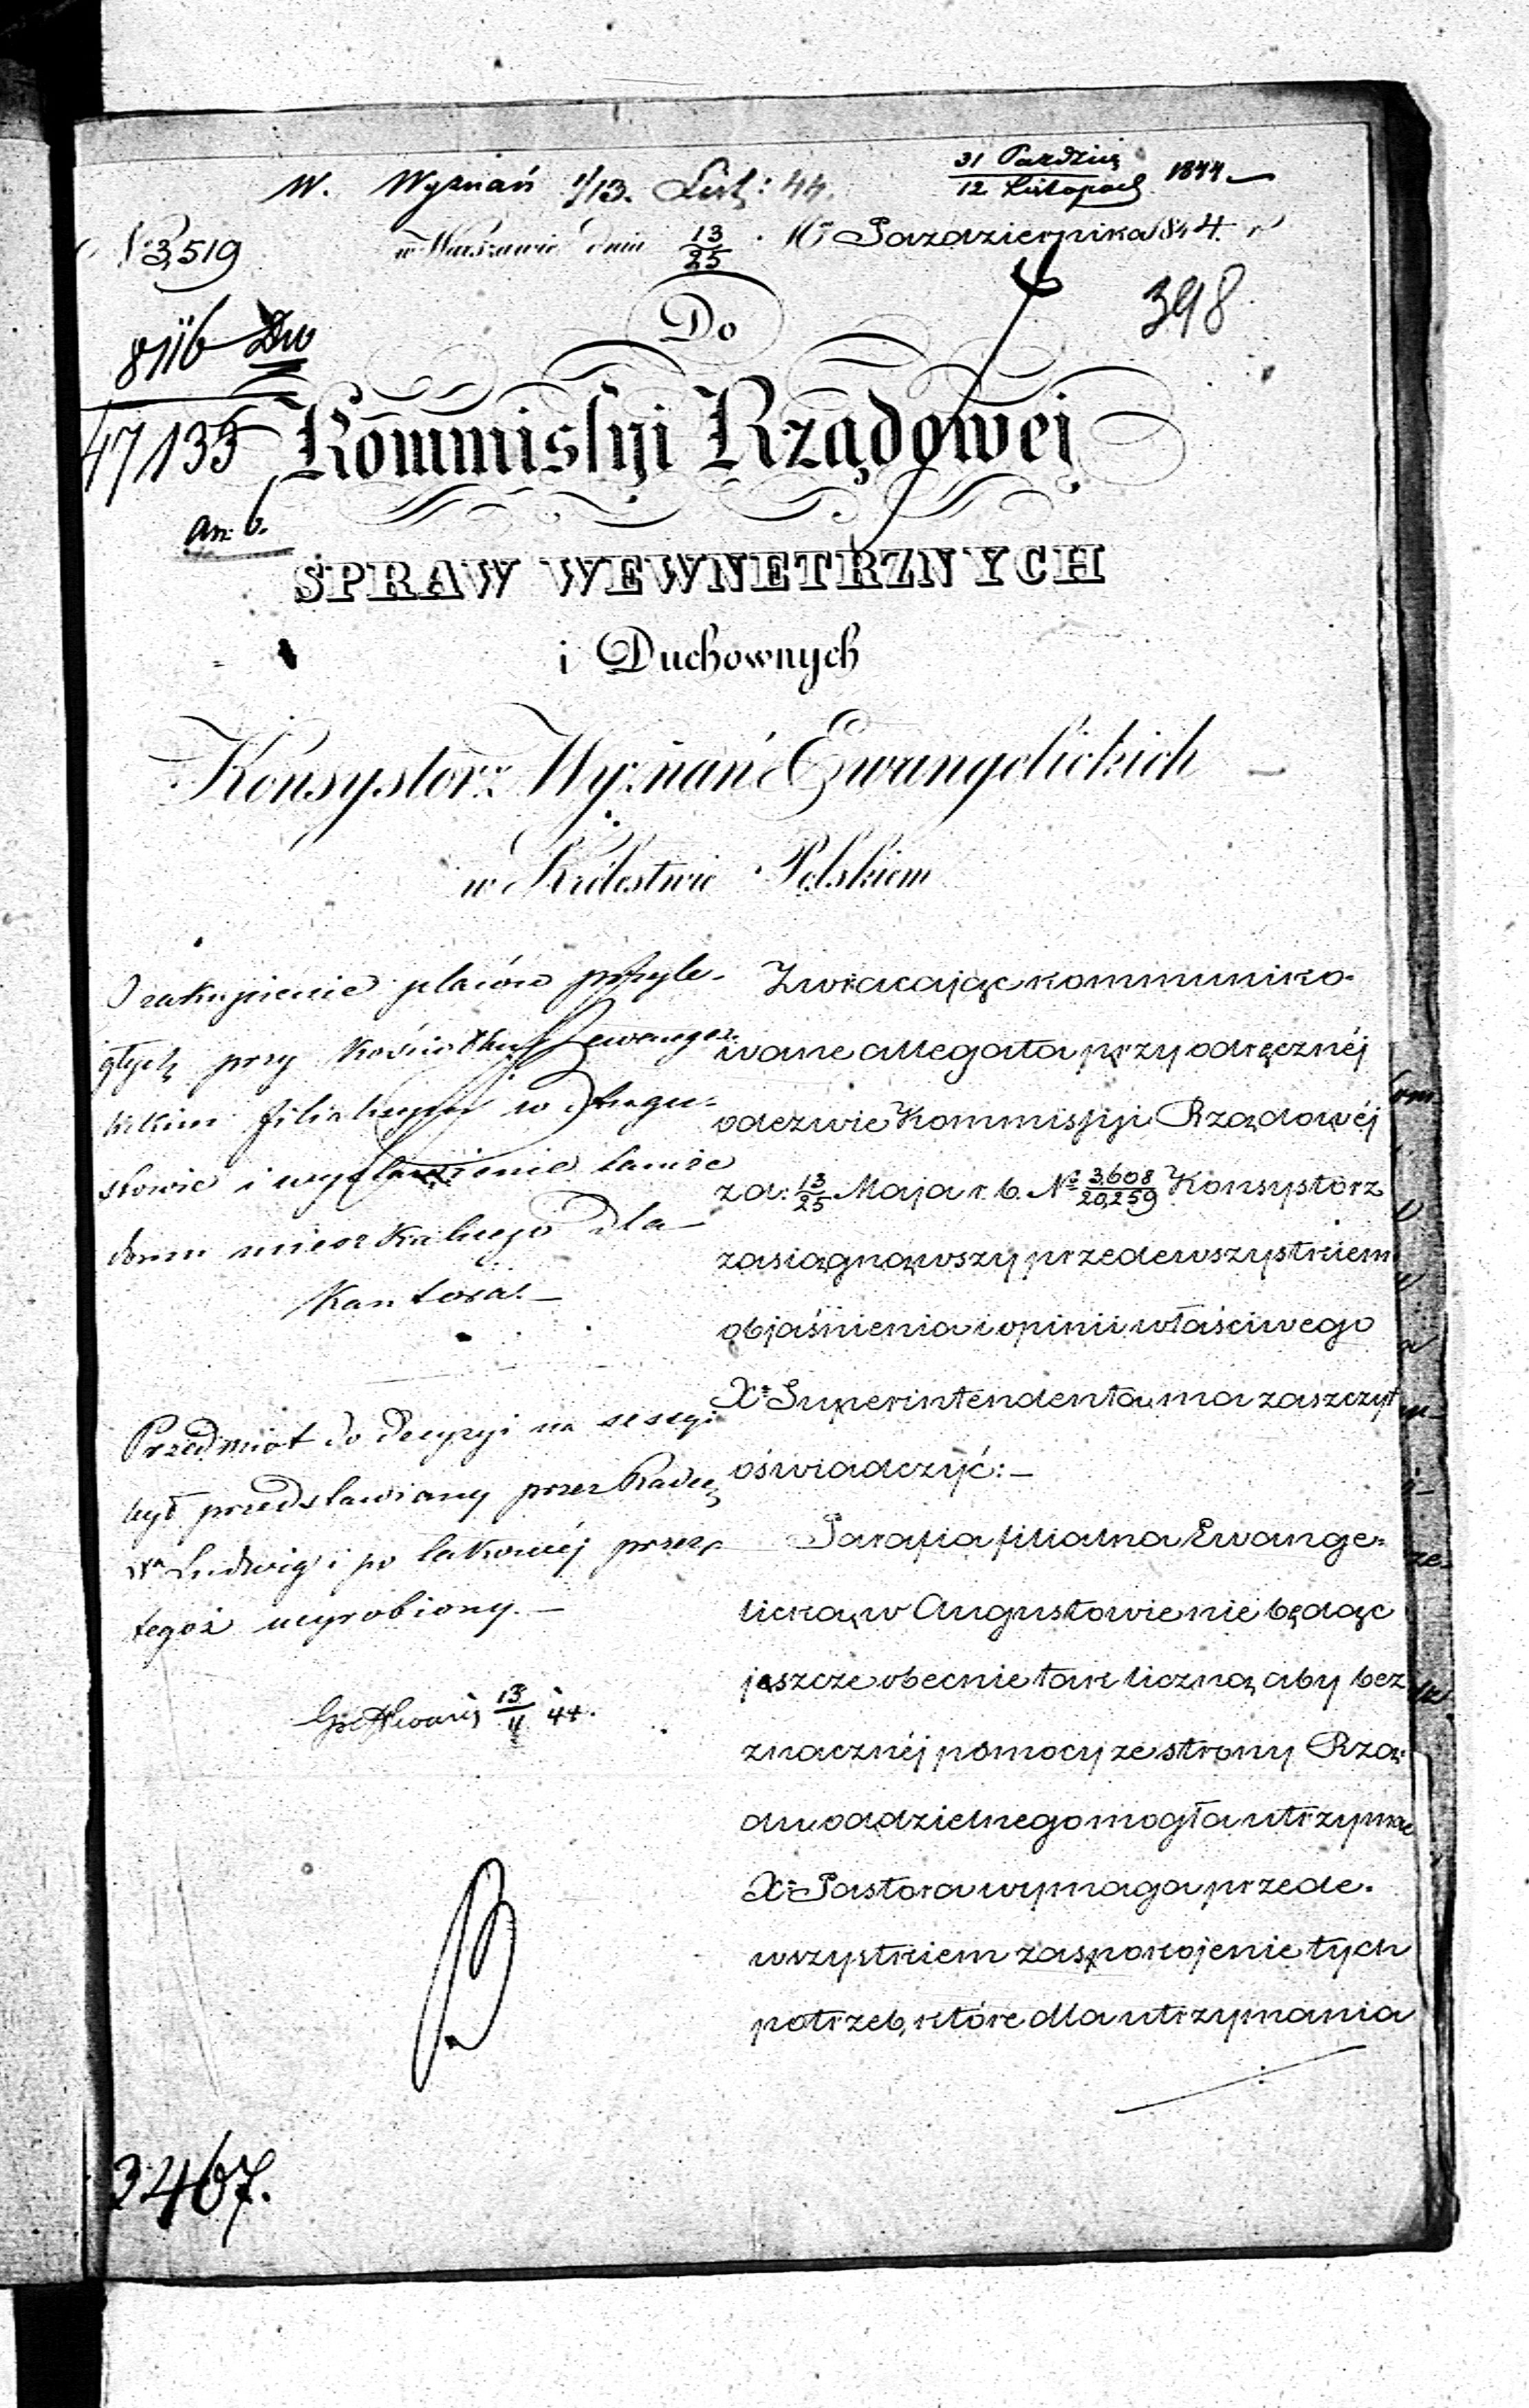 W. Wyznań 1/13. List: 44.
31 Paździer
12 Listopad 1844
N 3,519
w Warszawie dnia 13/25 Października 1844 r
398
Do
8116 Dw
47133
Kommissyi Rządowej
an. 6.
SPRAW WEWNETRZNYCH
i Duchownych
Konsystorz Wyznań Ewangelickich
w Królestwie Polskiem
O zakupienie placów przyle-
głych przy Kościołku Ewange-
lickim filialnym w Augu-
stowie i wystawienie tamże
domu mieszkalnego dla
Kantora.—
Przedmiot do decyzyi na sessyi
był przedstawiany przez Radcę
Wo Ludwig i po takowéj przez
tegoż wyrobiony.—
13/11 44.
3467.
Zwracając kommuniko-
wane allegata przy odręcznéj
odezwie Kommissyi Rządowéj
z d: 13/25 Maja r. b. No 3,608/20,259 Konsystorz
zasiągnąwszy przedewszystkiem
objaśnienia i opinii właściwego
Xa Superintendenta, ma zaszczyt
oświadczyć:—
Parafia filialna Ewange-
licka w Augustowie nie będąc
jeszcze obecnie tak liczną, aby bez
znacznéj pomocy ze strony Rzą-
du oddzielnego mogła utrzymać
Xa Pastora wymaga przede-
wszystkiem zaspokojenie tych
potrzeb, które dla utrzymania